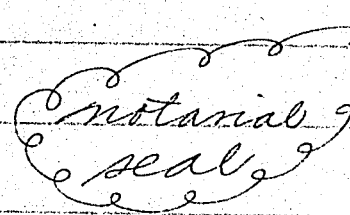 notarial
seal